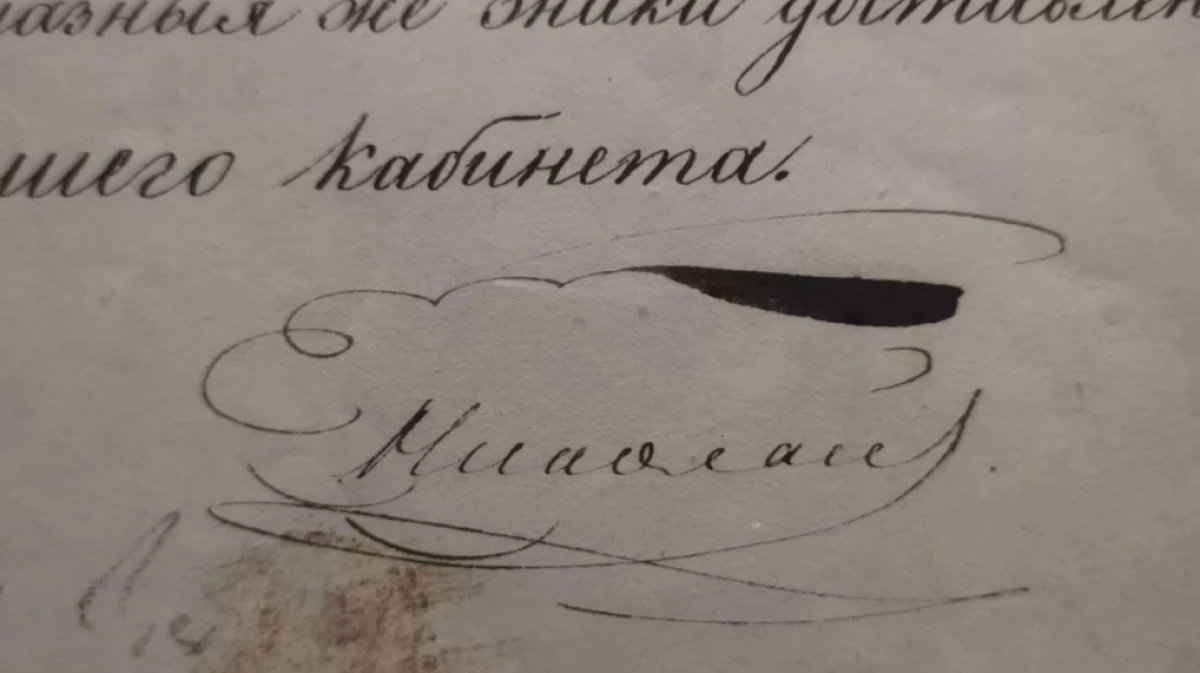 азныя же знаки доставлен
шего кабинета.
Николай.